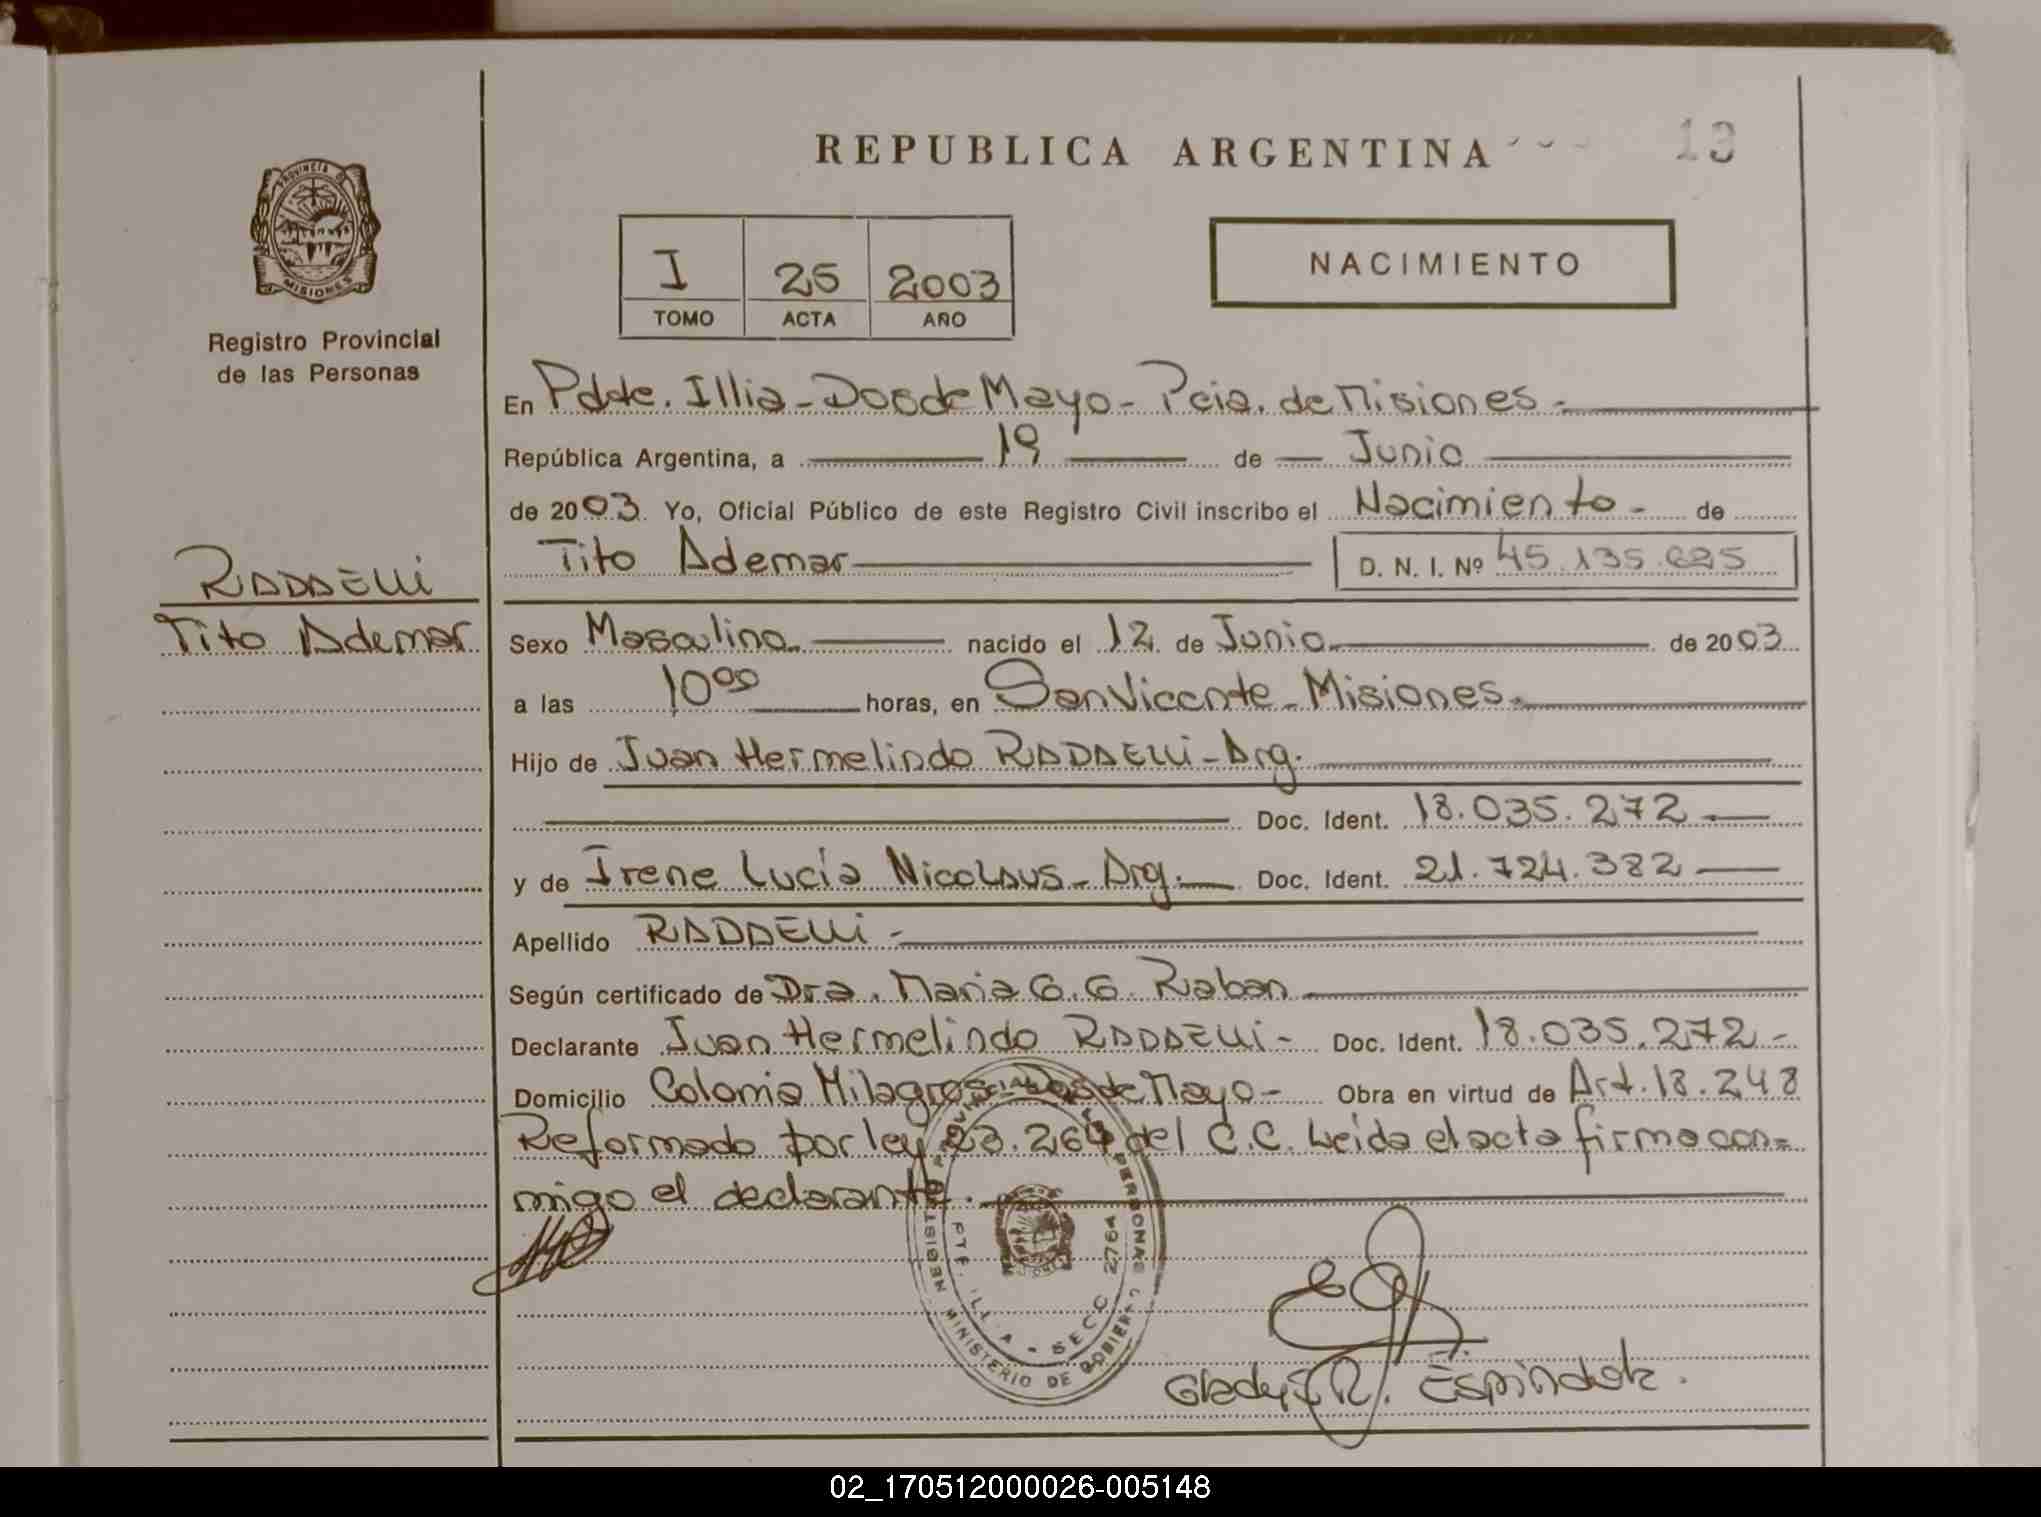 REPUBLICA ARGENTINA
13
PROVINCIA D MISIONES
Registro Provincial
de las Personas
I 25 2003
TOMO ACTA AÑO
NACIMIENTO
En Pdte. Illia - Dos de Mayo - Pcia. de Misiones -
República Argentina, a 19 de Junio
de 2003 Yo, Oficial Público de este Registro Civil inscribo el Nacimiento - de
Tito Ademar D. N. I. Nº 45.135.625
RADAELLI
Tito Ademar
Sexo Masculino nacido el 12 de Junio de 2003
a las 10⁰⁰ horas, en San Vicente - Misiones
Hijo de Juan Hermelindo RADAELLI - Arg.
Doc. Ident. 18.035.272
y de Irene Lucía Nicolaus - Arg. Doc. Ident. 21.724.382
Apellido RADAELLI -
Según certificado de Dra. Maria G. G. Raban
Declarante Juan Hermelindo RADAELLI - Doc. Ident. 18.035.272 -
Domicilio Colonia Milagros - Dos de Mayo - Obra en virtud de Art. 18.248
Reformado por ley 23.264 del C.C. Leida el acta firma con=
migo el declarante.
PTE. ILLIA - SECC 2764
MINISTERIO DE GOBIERNO
Gladys R. Espindola.
02_170512000026-005148